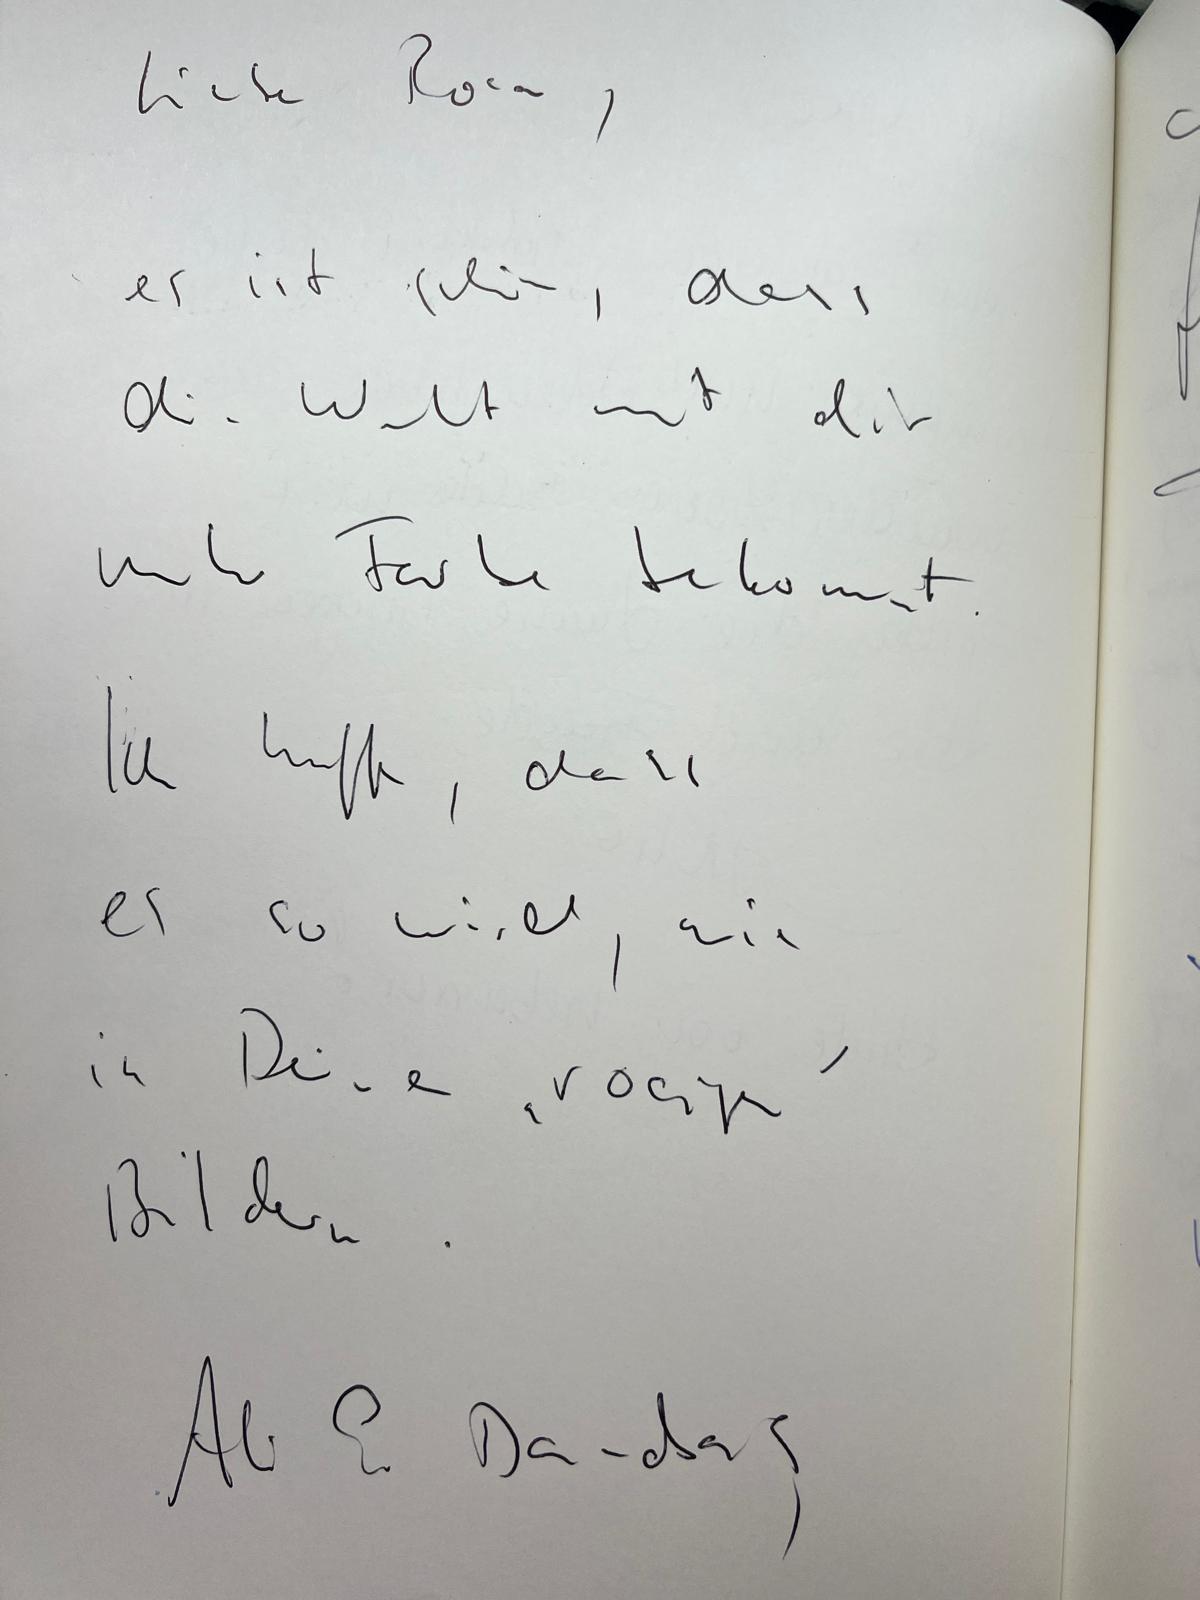 Liebe Rosa,
es ist schön, dass
die Welt mit dir
mehr Farbe bekommt.
Ich hoffe, dass
es so wird, wie
in Deinen „rosigen“
Bildern.